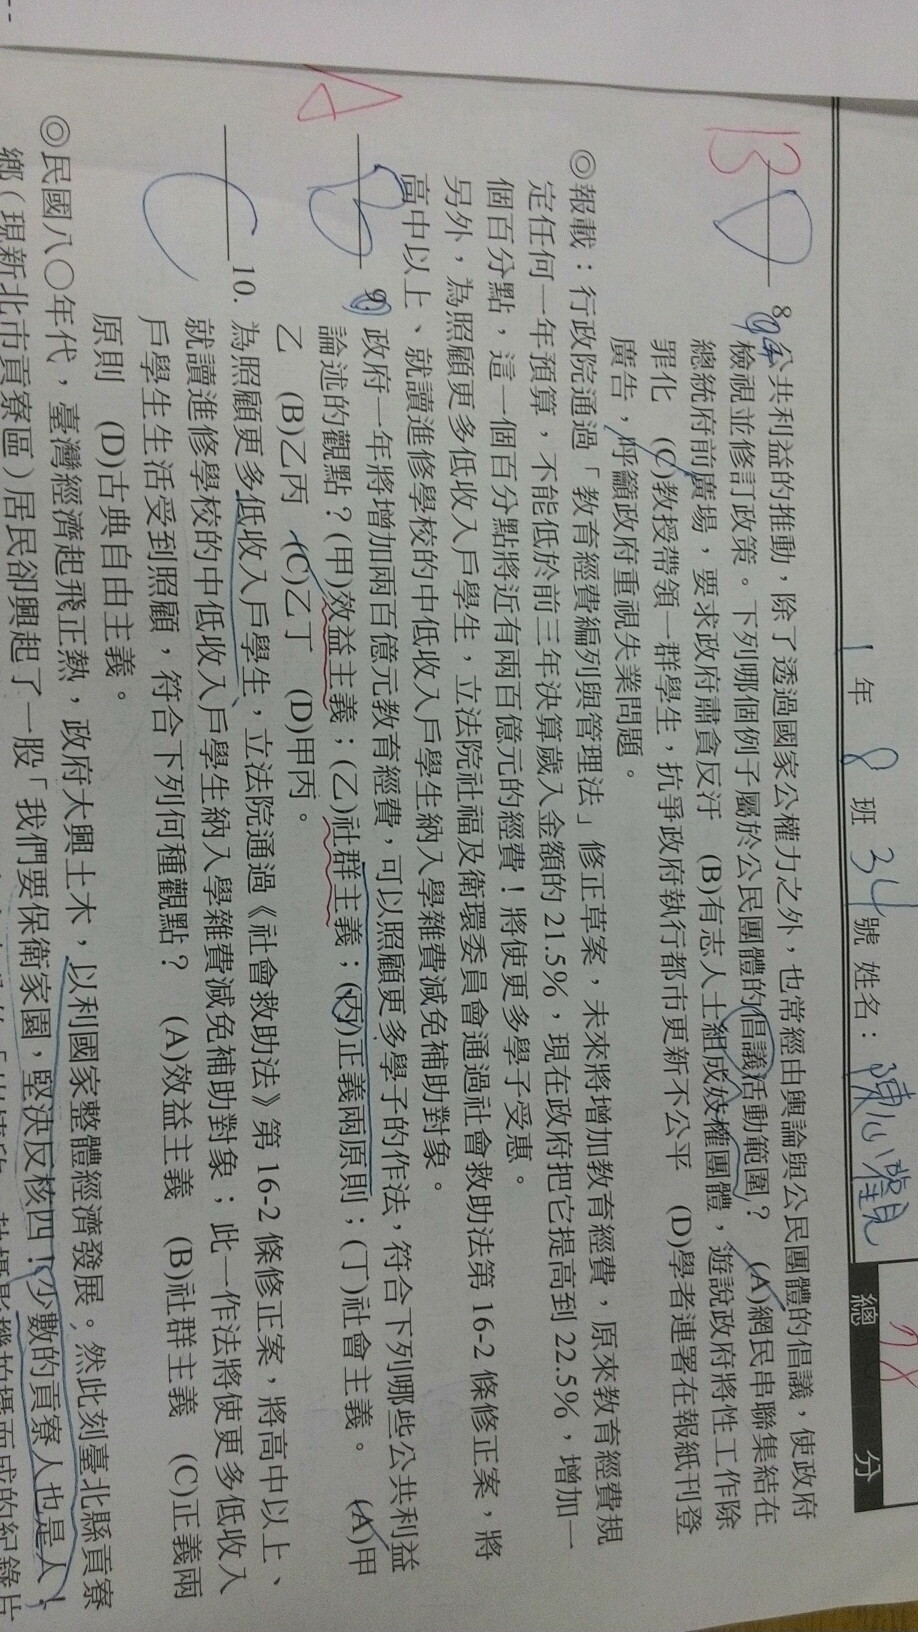 1年 8班 34號 姓名：陳心
總分
B
8. 公共利益的推動，除了透過國家公權力之外，也常經由輿論與公民團體的倡議，使政府
檢視並修訂政策。下列哪個例子屬於公民團體的倡議活動範圍？ (A)網民串聯集結在
總統府前廣場，要求政府肅貪反汙 (B)有志人士組成妓權團體，遊說政府將性工作除
罪化 (C)教授帶領一群學生，抗爭政府執行都市更新不公平 (D)學者連署在報紙刊登
廣告，呼籲政府重視失業問題。
◎報載：行政院通過「教育經費編列與管理法」修正草案，未來將增加教育經費，原來教育經費規
定任何一年預算，不能低於前三年決算歲入金額的 21.5%，現在政府把它提高到 22.5%，增加一
個百分點，這一個百分點將近有兩百億元的經費！將使更多學子受惠。
另外，為照顧更多低收入戶學生，立法院社福及衛環委員會通過社會救助法第 16-2 條修正案，將
高中以上、就讀進修學校的中低收入戶學生納入學雜費減免補助對象。
A
B 9. 政府一年將增加兩百億元教育經費，可以照顧更多學子的作法，符合下列哪些公共利益
論述的觀點？(甲)效益主義；(乙)社群主義；(丙)正義兩原則；(丁)社會主義。 (A)甲
乙 (B)乙丙 (C)乙丁 (D)甲丙。
C 10. 為照顧更多低收入戶學生，立法院通過《社會救助法》第 16-2 條修正案，將高中以上、
就讀進修學校的中低收入戶學生納入學雜費減免補助對象；此一作法將使更多低收入
戶學生生活受到照顧，符合下列何種觀點？ (A)效益主義 (B)社群主義 (C)正義兩
原則 (D)古典自由主義。
◎民國八○年代，臺灣經濟起飛正熱，政府大興土木，以利國家整體經濟發展。然此刻臺北縣貢寮
鄉（現新北市貢寮區）居民卻興起了一股「我們要保衛家園，堅決反核四！少數的貢寮人也是人！